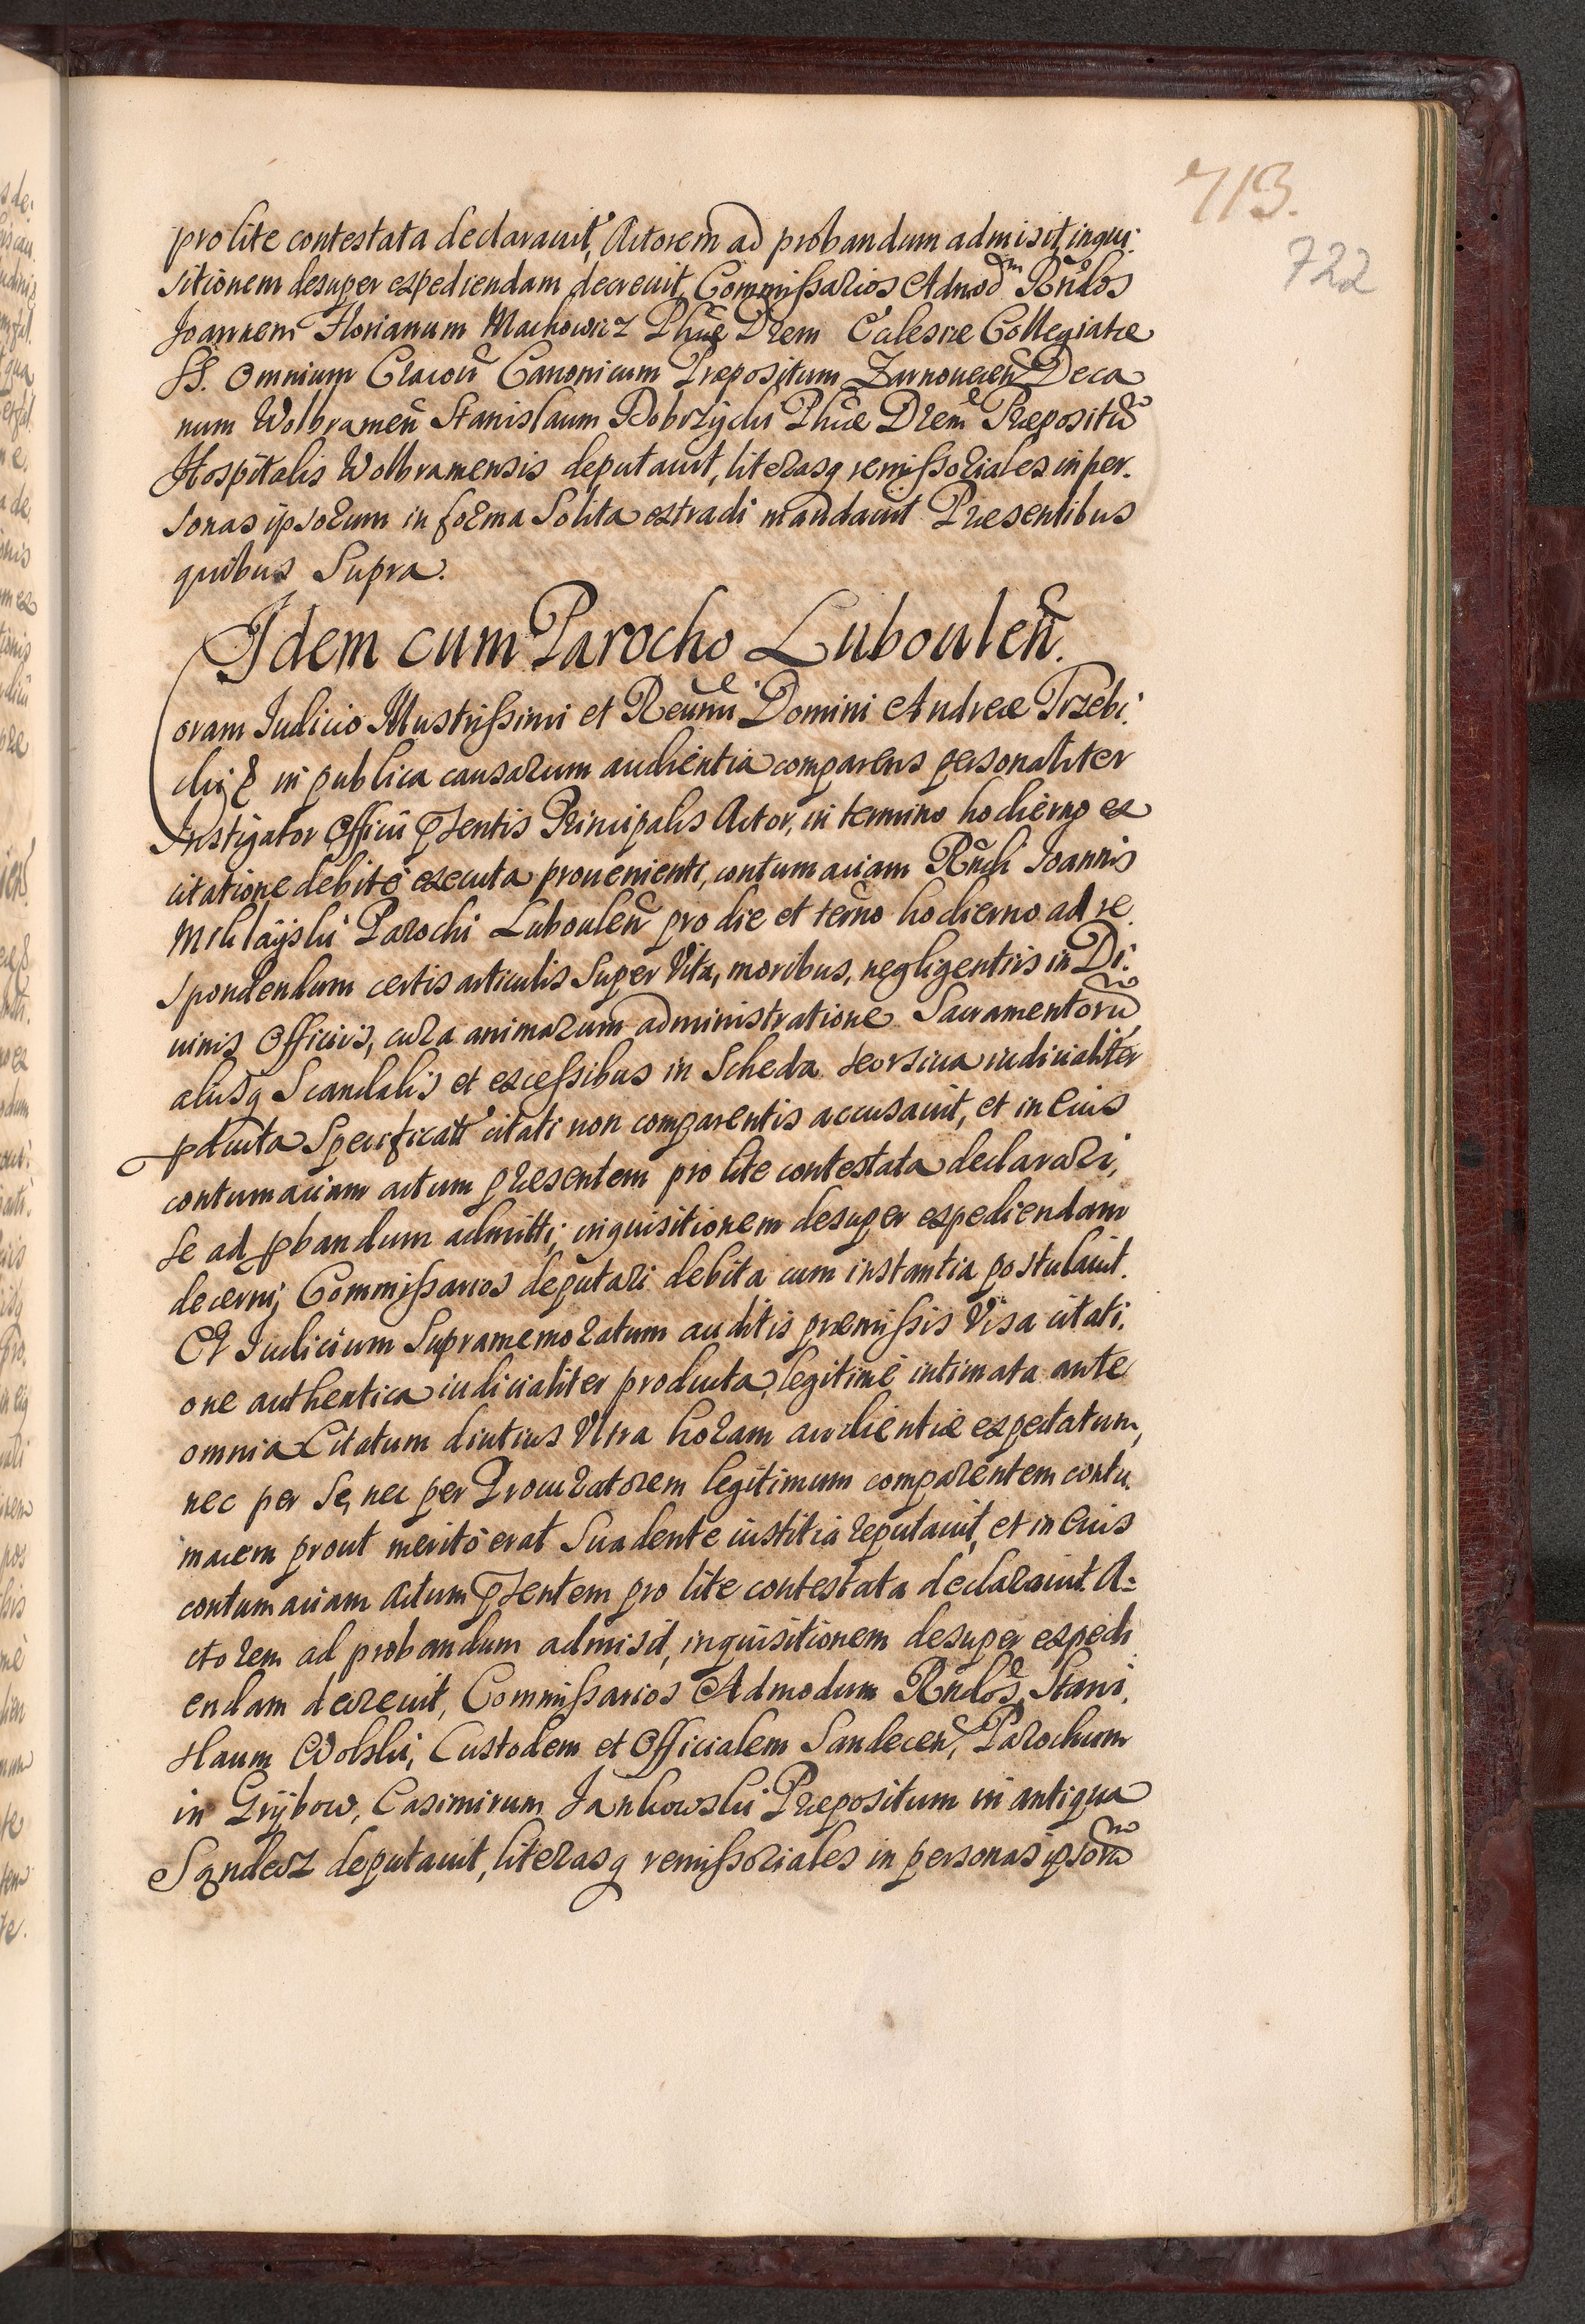 713.
722
pro lite contestata declarauit, Actorem ad probandum admisit, inqui:
sitionem desuper expediendam decreuit, Commissarios Admod̃m Rñdos
Joannem Florianum Machowicz Phiæ Drem Ecclesiæ Collegiatæ
SS. Omnium Cracoũ Canonicum Præpositum Zarnouecen̄ Deca
num Wolbramen̄ Stanislaum Dobrzychi Phiæ Drem Præpositũ
Hospitalis Wolbramensis deputauit, literasq remissoriales in per.
sonas ipsorum in forma solita extradi mandauit Præsentibus
quibus supra.
Idem cum Parocho Luboulen̄.
Coram Iudicio Illustrissimi et Reũmi Domini Andreæ Trzebi.
cki & in publica causarum audientia comparens personaliter
Instigator Officii pñtentis Principalis Actor, in termino hodierno ex
citatione debitè executa prouenienti, contumaciam Rñdi Joannis
Parochi Luboulen̄ pro die et term̃o hodierno ad re
spondendum certis articulis super Vita, moribus, negligentiis in Di:
uinis Officiis, cura animarum administratione Sacramentorũ
aliisq Scandalis et excessibus in Scheda seorsiua iudicialiter
pducta Specificatis citati non comparentis accusauit, et in eius
contumaciam actum præsentem pro lite contestata declarari,
se ad pbandum admitti, inquisitionem desuper expediendam
decerni, Commissarios deputari debita cum instantia postulauit.
Et Iudicium Supramemoratum auditis præmissis Visa citati.
one authentica iudicialiter producta, legitimè intimata ante
omnia Citatum diutius Vltra horam audientiæ expectatum,
nec per se, nec per Procuratorem legitimum comparentem contu.
macem prout meritò erat suadente iustitia reputauit, et in eius
contumaciam actum pñsentem pro lite contestata declarauit. A=
ctorem ad probandum admisit, inquisitionem desuper expedi
endam decreuit, Commissarios Admodum Rñdos, Stani.
slaum Wolski, Custodem et Officialem Sandecen̄, Parochum
in Grybow, Casimirum Jankowski Præpositum in antiqua
Sandecz deputauit, literasq remissoriales in personas ipsorũ